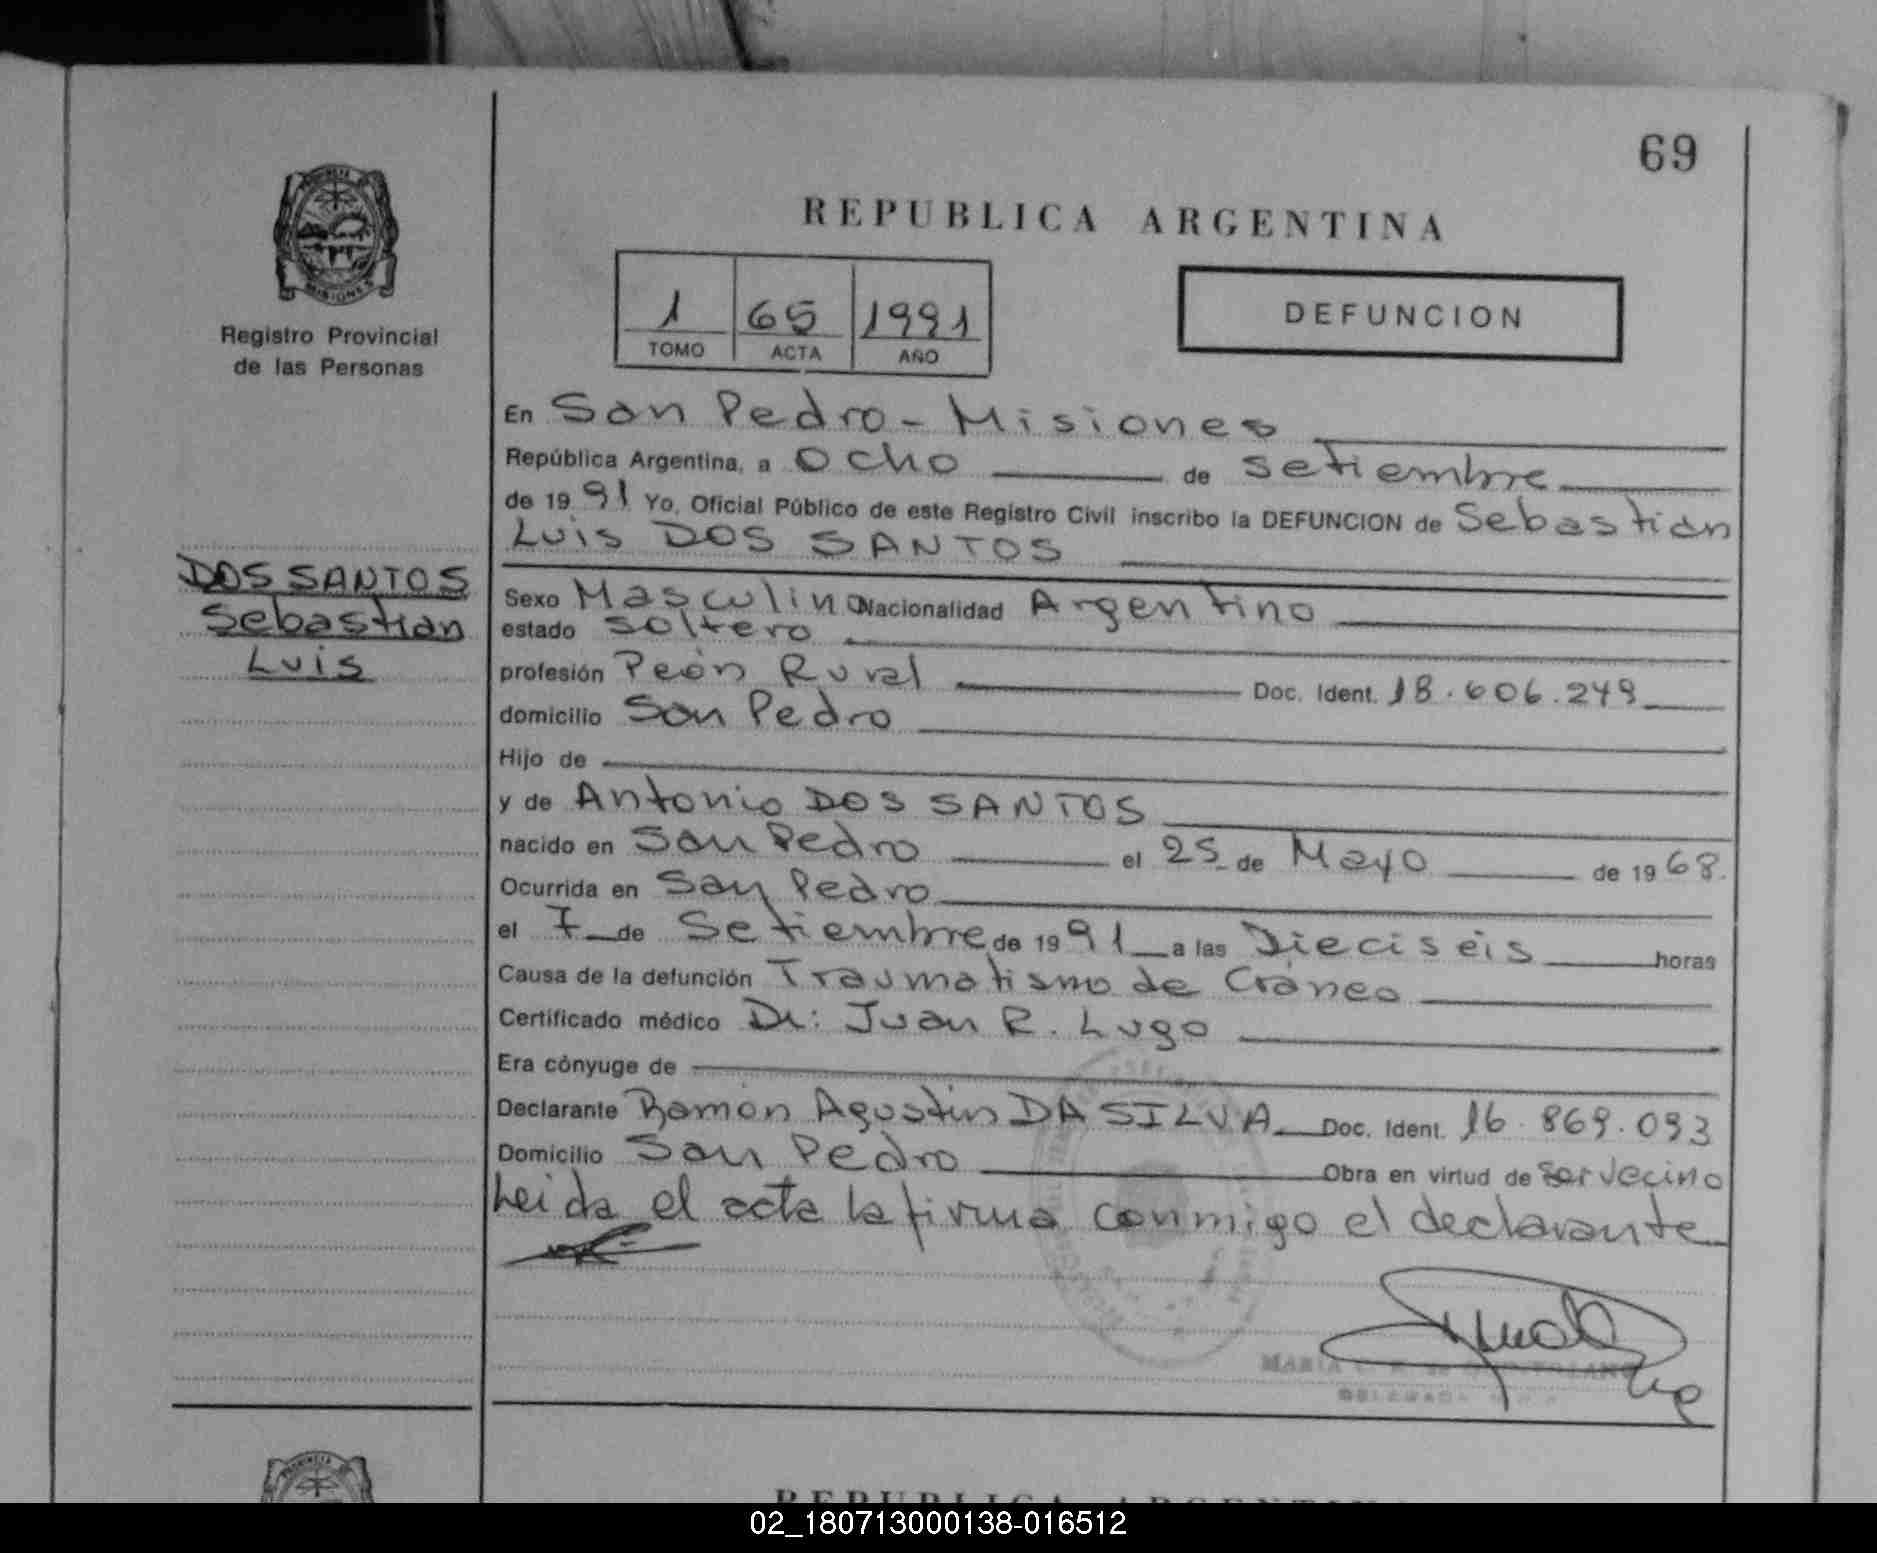 69
PROVINCIA DE
MISIONES
Registro Provincial
de las Personas
REPUBLICA ARGENTINA
1 65 1991
TOMO ACTA AÑO
DEFUNCION
En San Pedro - Misiones
República Argentina, a Ocho de Setiembre
de 19 91 Yo, Oficial Público de este Registro Civil inscribo la DEFUNCION de Sebastian
Luis DOS SANTOS
DOS SANTOS
Sebastian
Luis
Sexo Masculino Nacionalidad Argentino
estado Soltero
profesión Peón Rural Doc. Ident. 18.606.249
domicilio San Pedro
Hijo de
y de Antonio DOS SANTOS
nacido en San Pedro el 25 de Mayo de 19 68.
Ocurrida en San Pedro
el 7 de Setiembre de 19 91 a las Dieciséis horas
Causa de la defunción Traumatismo de Cráneo
Certificado médico Dr: Juan R. Lugo
Era cónyuge de
Declarante Ramón Agustín DA SILVA Doc. Ident. 16.869.093
Domicilio San Pedro Obra en virtud de Ser Vecino
Leida el acta la firma conmigo el declarante
MARIA
DELEGADA
REPUBLICA ARGENTINA
02_180713000138-016512